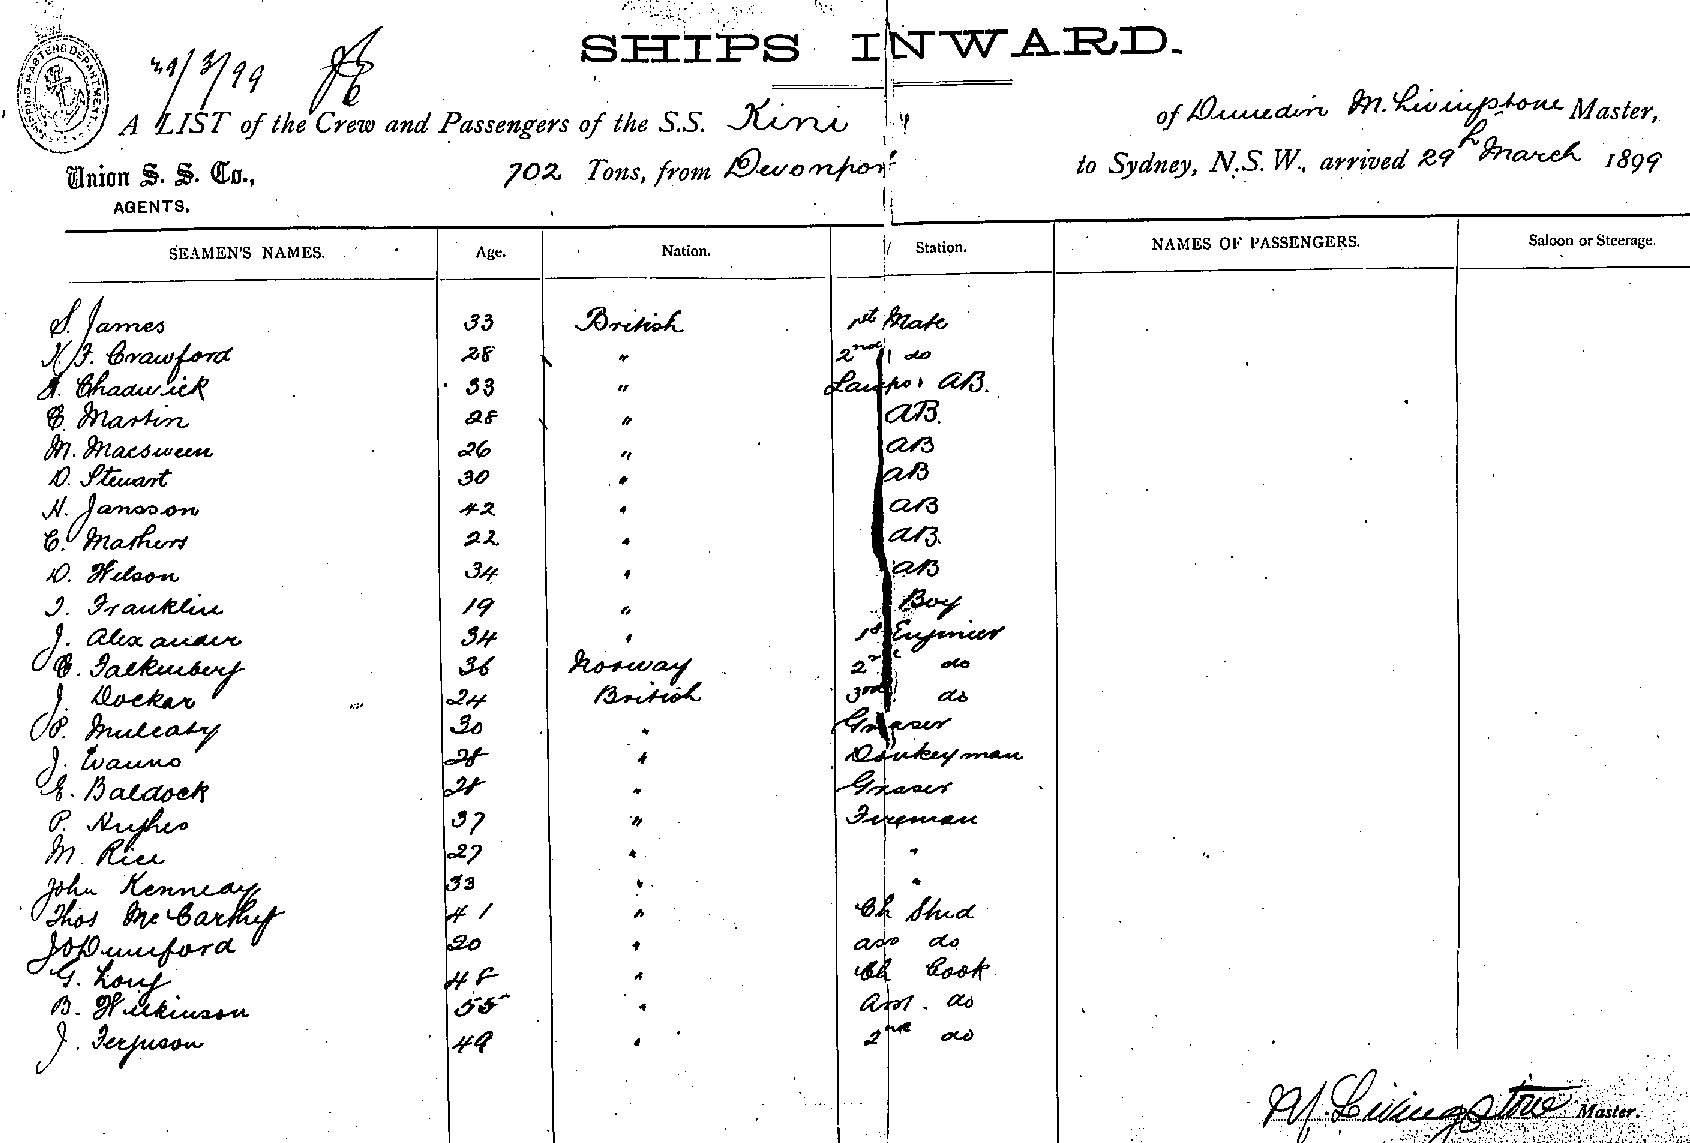 SHIPS INWARD.
29/3/99
A LIST of the Crew and Passengers of the S.S. Kini of Dunedin M. Livingstone Master,
Union S. S. Co., AGENTS, 702 Tons, from Devonport to Sydney, N.S.W., arrived 29th March 1899
SEAMEN'S NAMES. Age. Nation. Station. NAMES OF PASSENGERS. Saloon or Steerage.
S. James 33 British 1st Mate
Crawford 28 " 2nd do
Chadwick 33 " Lamps AB.
C. Martin 28 " AB.
M. Macsween 26 " AB
D. Stewart 30 " AB
H. Jansson 42 " AB
C. Mathers 22 " AB.
D. Wilson 34 " AB
Franklin 19 " Boy
J. Alexander 34 " 1st Engineer
Falkenberg 36 Norway 2nd do
J. Docker 24 British 3rd do
P. Mulcahy 30 " Greaser
J. 28 " Donkeyman
E. Baldock 28 " Greaser
P. Hughes 37 " Fireman
M. Rice 27 " "
John Kennedy 33 " "
Thos McCarthy 41 " Ch Stud
Dunford 20 " ass do
G. Long 48 " Ch Cook
B. Wilkinson 55 " do
J. Ferguson 49 " 2nd do
M. Livingstone Master.